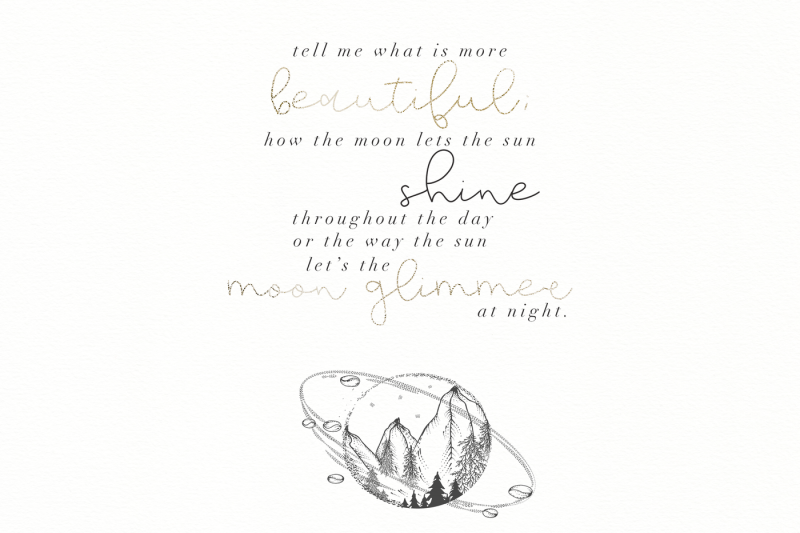 tell me what is more
beautiful;
how the moon lets the sun
shine
throughout the day
or the way the sun
let's the
moon glimmer
at night.